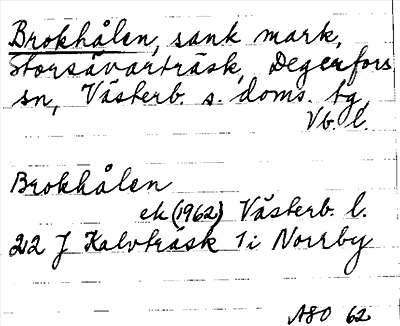 Brokhålen, sank mark,
Storsävarträsk, Degerfors
sn, Västerb. s. doms. bg,
Vb. l.
Brokhålen
ek (1962) Västerb. l.
212 J Kalvträsk 1i Norrby
ASO 62